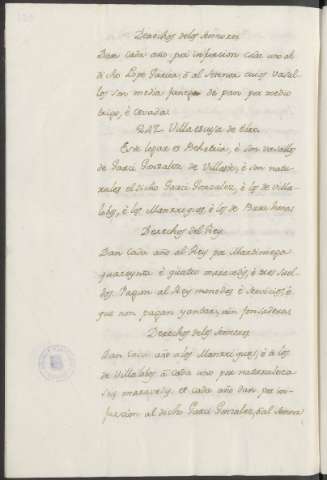 Derechos de los señores
Dan cada año por infurcion cada uno al
dicho Lope Garcia, ò al señor cuios vasal
los son media fanega de pan por medio
trigo, è cevada.
Villaescusa de
Este logar es Behetria, è son vasallos
de Garci Gonzalez, de è son natu-
rales el dicho Garci Gonzalez, è los de Villa-
lobos, è los Manrriques, è los de
Derechos del Rey
Dan cada año al Rey por Martiniega
quarenta è quatro maravedis, è tres suel-
dos. Pagan al Rey monedas è servicios, è
que non pagan yantar, nin fonsaderas
Derechos de los señores
Dan cada año a los Manrriques, è a los
de Villalobos à cada uno por naturaleza
seis maravedis, et cada año dan por in-
furcion al dicho Garci Gonzalez, ò al señor